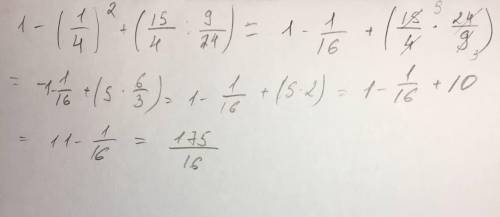 1 - (1/4)^2 + (15/4 : 9/24) = 1 - 1/16 + (15/4 5 · 24/9 3)
= -1 1/16 + (5 · 6/3) = 1 - 1/16 + (5·2) = 1 - 1/16 + 10
= 11 - 1/16 = 175/16